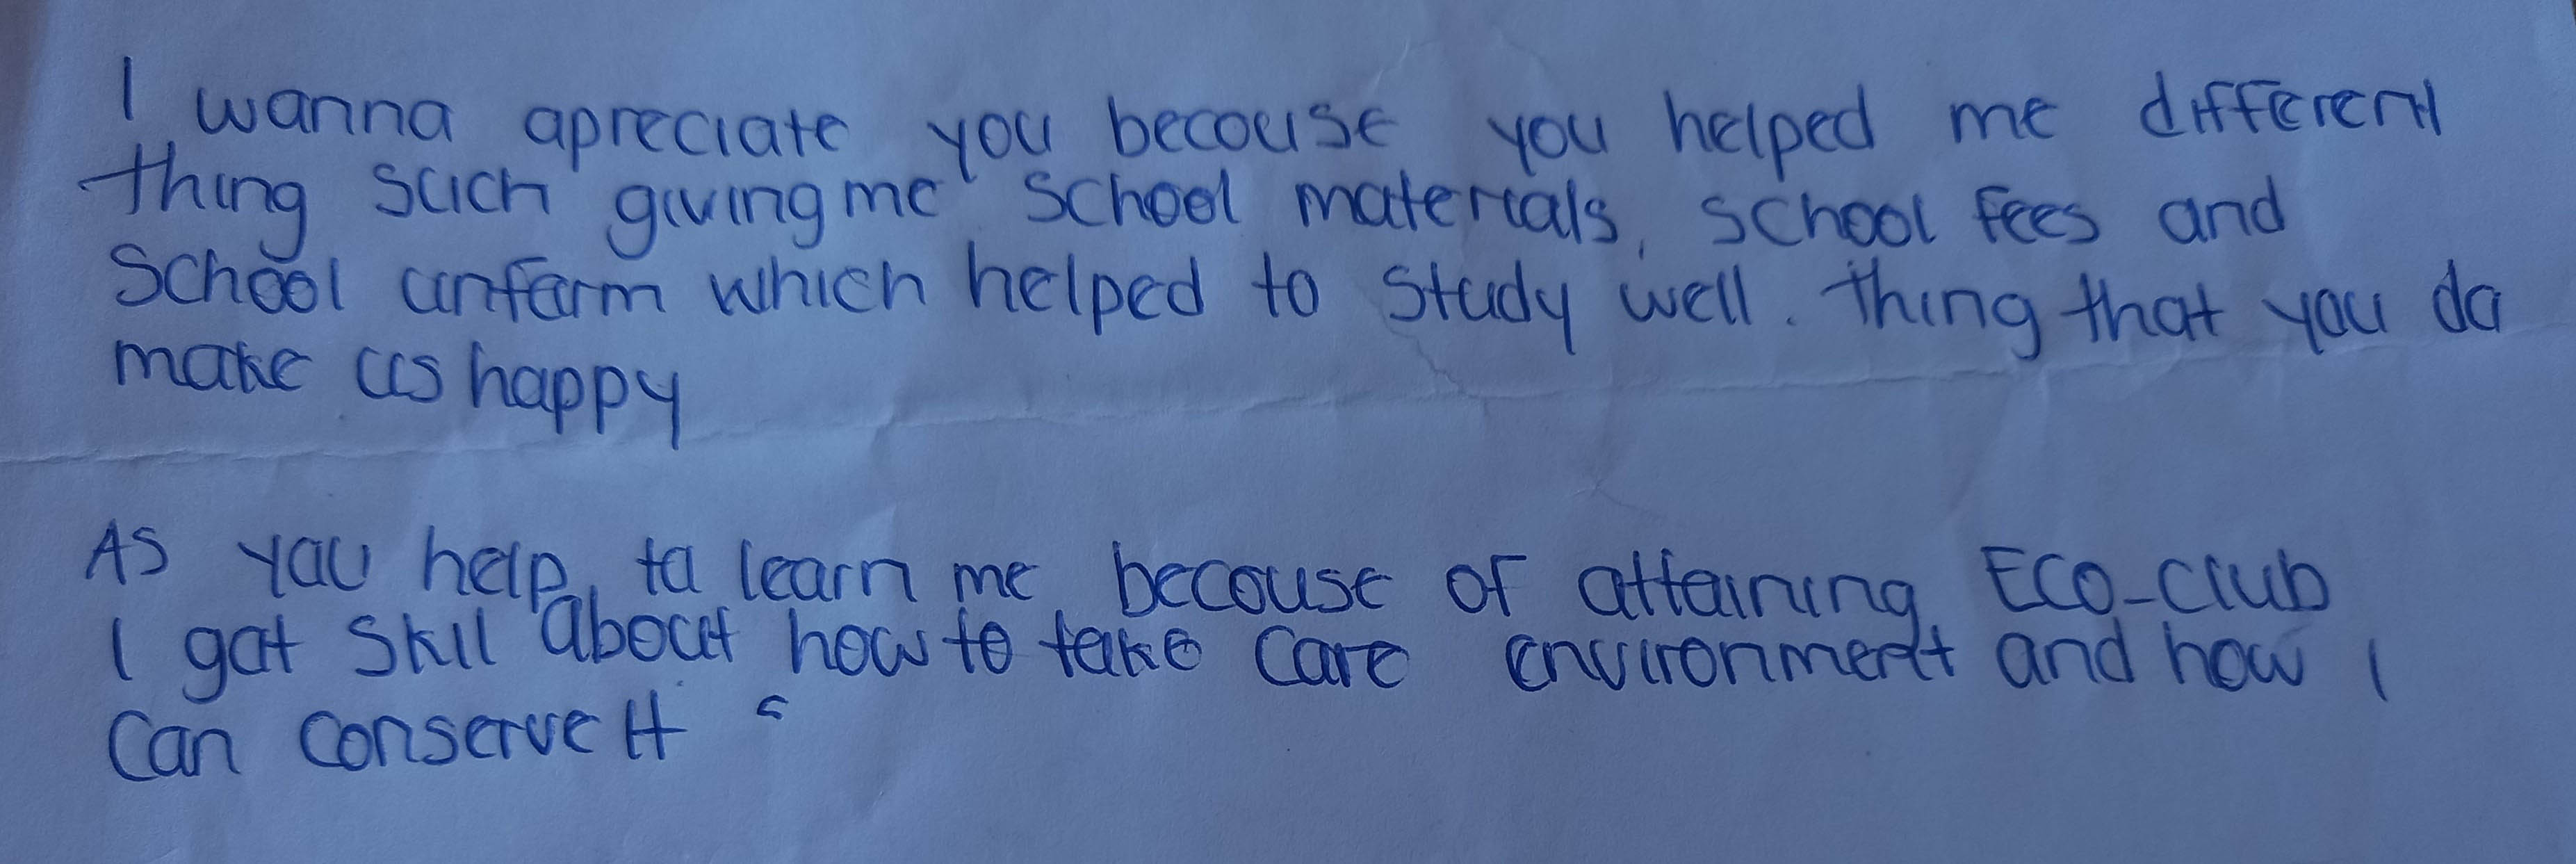 I wanna apreciate you becouse you helped me different
thing such giving me school materials, school fees and
School unfarm which helped to study well. thing that you da
make us happy
As you help ta learn me becouse of attaining Eco-club
I gat skill about how to take care environment and how I
can conserve it